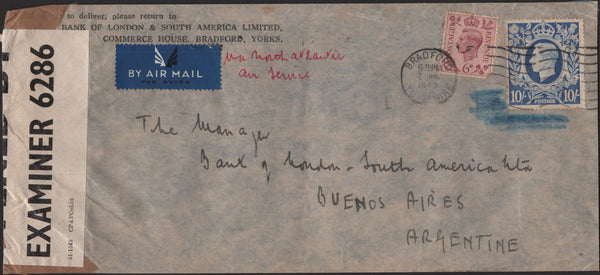 to deliver, please return to
BANK OF LONDON & SOUTH AMERICA LIMITED,
COMMERCE HOUSE, BRADFORD, YORKS.
BY AIR MAIL
PAR AVION
via North Atlantic
Air Service
POSTAGE REVENUE
6D
BRADFORD
10/- POSTAGE 10/-
EXAMINER 6286
The Manager
Bank of London & South America Ltd
BUENOS AIRES
ARGENTINE